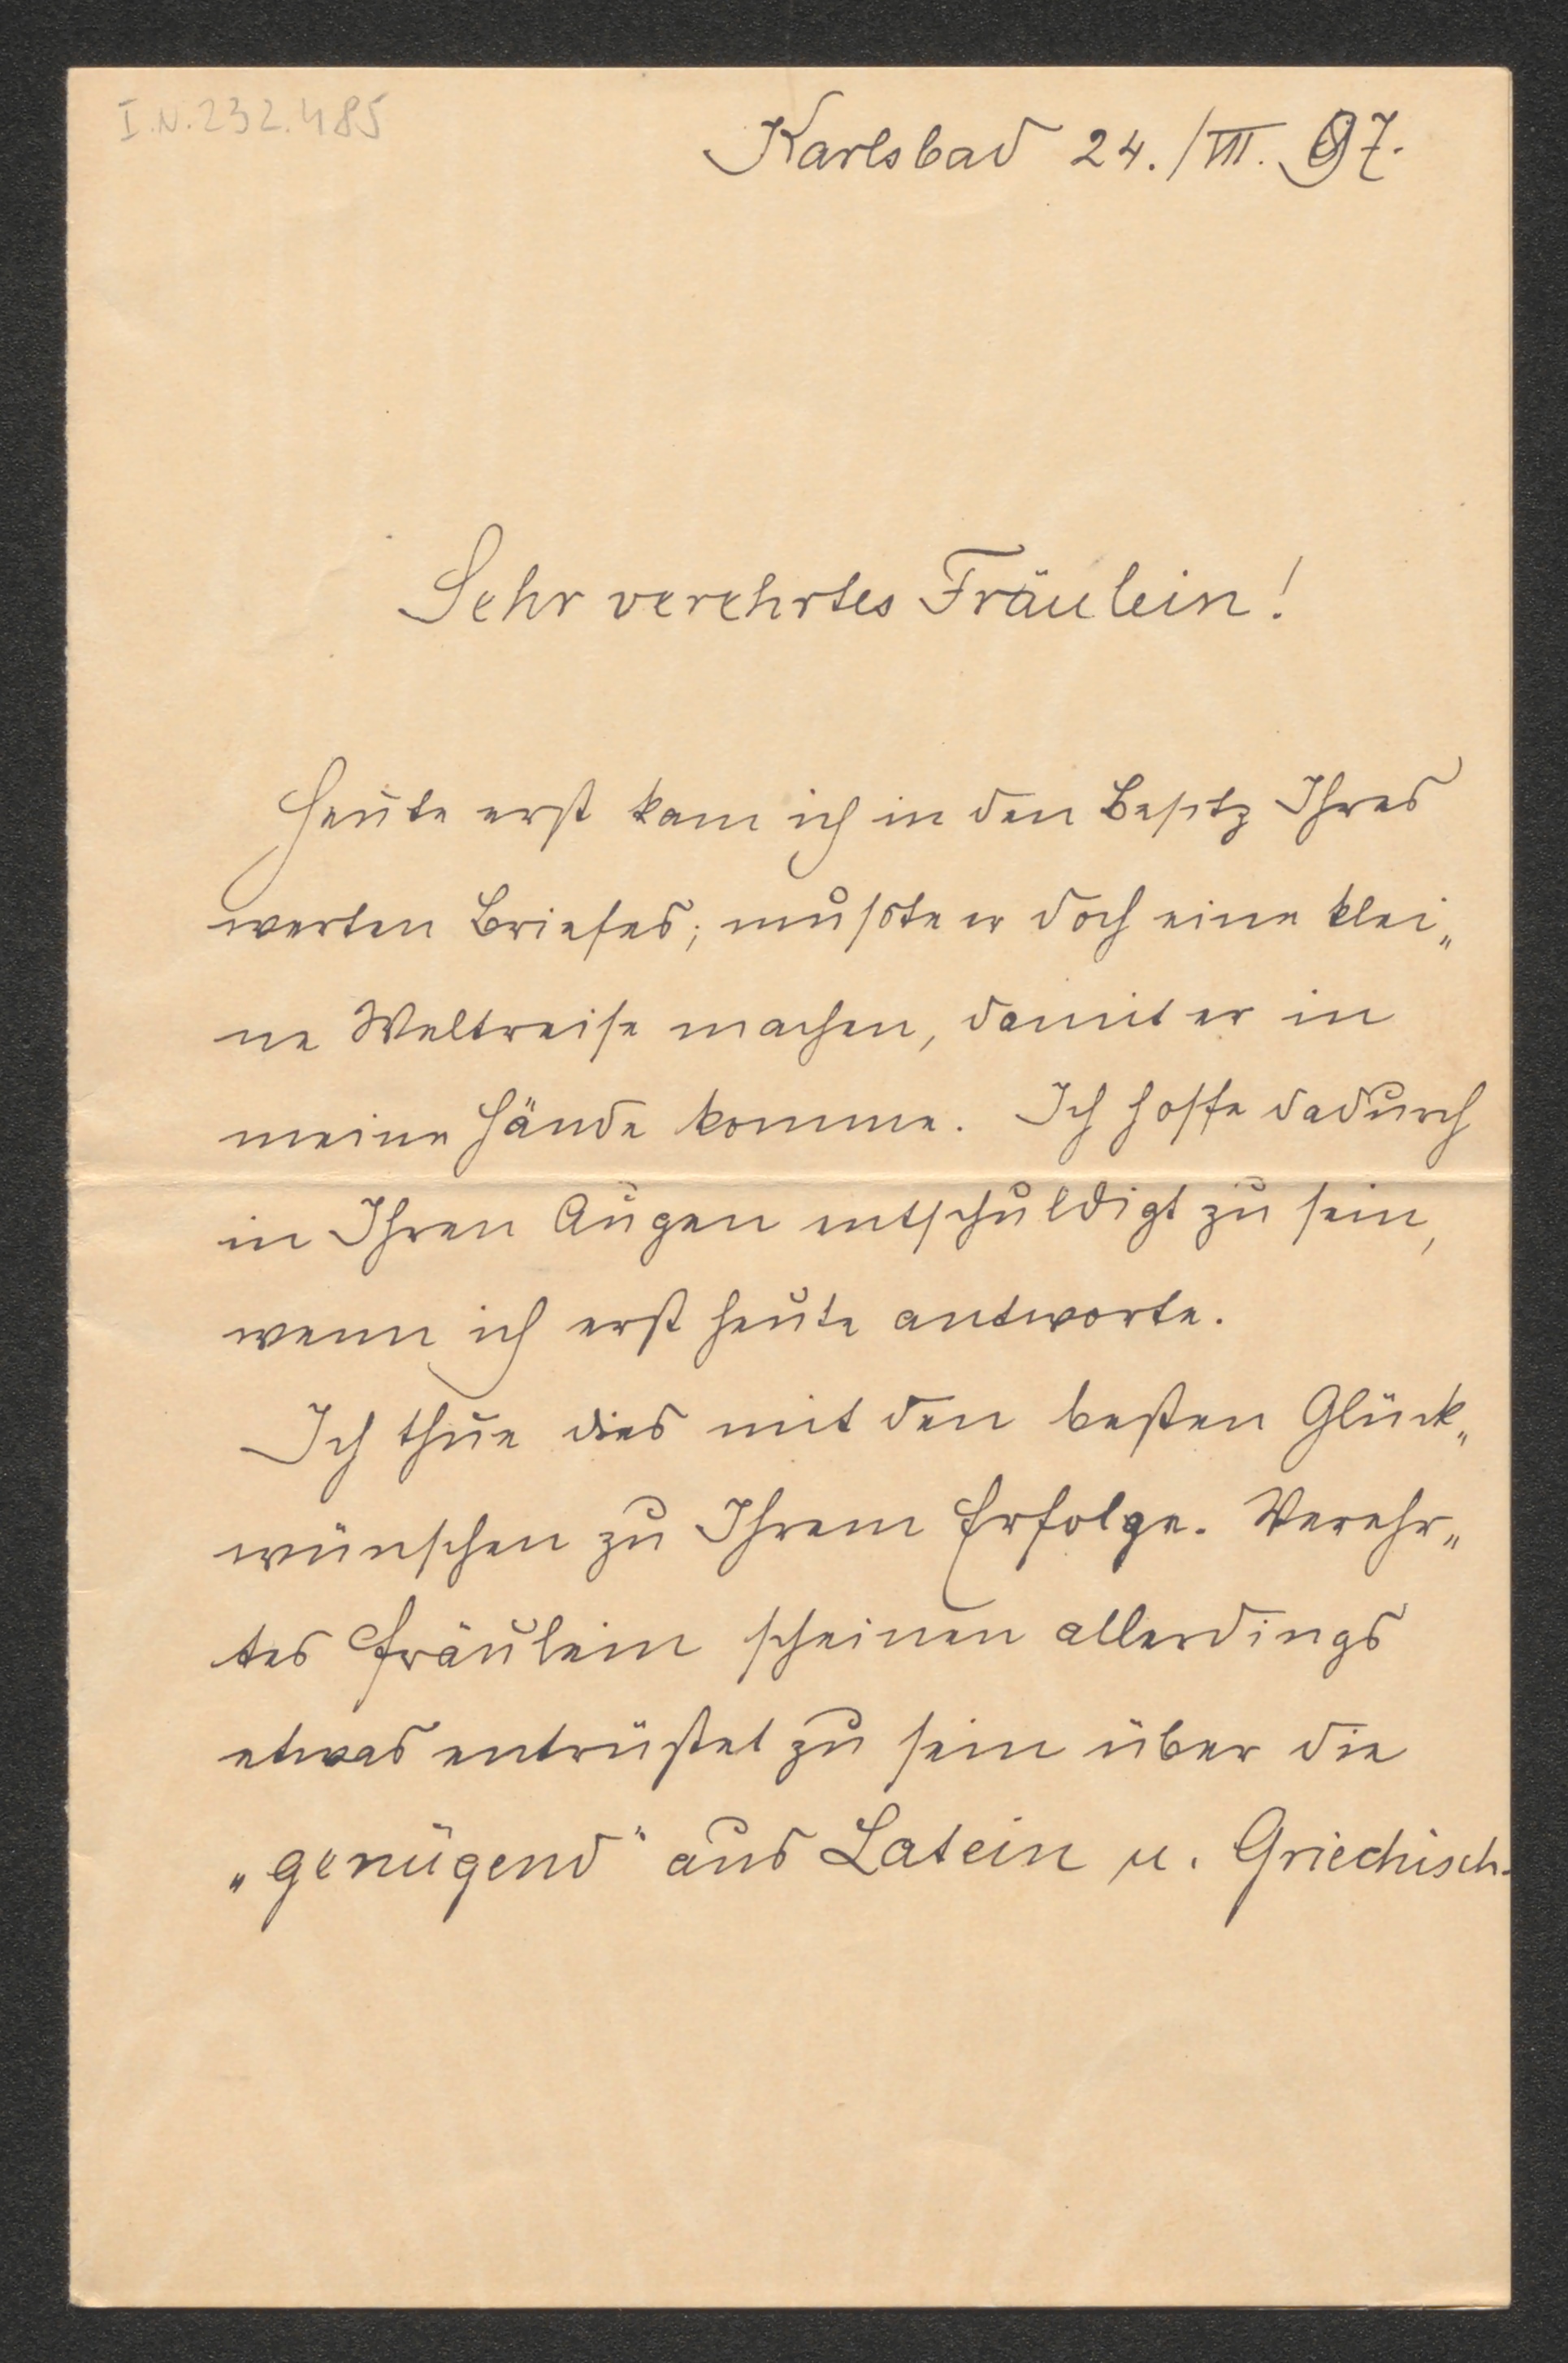 I.N.232.485
Karlsbad 24./VII. 97.
Sehr verehrtes Fräulein!
Heute erst kam ich in den Besitz Ihres
werten Briefes; mußte er doch eine klei„
ne Weltreise machen, damit er in
meine Hände komme. Ich hoffe dadurch
in Ihren Augen entschuldigt zu sein,
wenn ich erst heute antworte.
Ich thue dies mit den besten Glück„
wünschen zu Ihrem Erfolge. Verehr„
tes Fräulein scheinen allerdings
etwas entrüstet zu sein über die
„genügend“ aus Latein u. Griechisch.